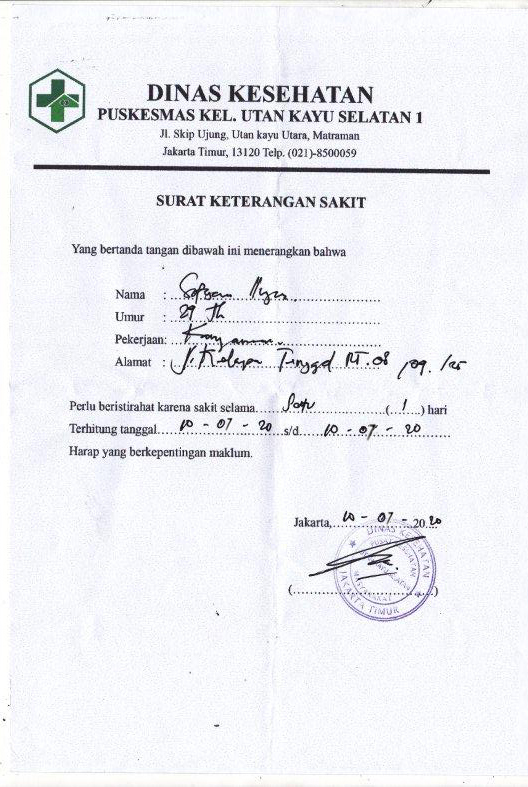 DINAS KESEHATAN
PUSKESMAS KEL. UTAN KAYU SELATAN 1
Jl. Skip Ujung, Utan kayu Utara, Matraman
Jakarta Timur, 13120 Telp. (021)-8500059
SURAT KETERANGAN SAKIT
Yang bertanda tangan dibawah ini menerangkan bahwa
Nama :
Umur : 29 Th
Pekerjaan:
Alamat : Jl. Kelapa Tinggal RT.08 /09. /25
Perlu beristirahat karena sakit selama Satu ( 1 ) hari
Terhitung tanggal 10 - 07 - 20 s/d 10 - 07 - 20
Harap yang berkepentingan maklum.
Jakarta, 10 - 07 - 2020
DINAS KESEHATAN
PUSAT KESEHATAN
MASYARAKAT
JAKARTA TIMUR
(...........................)